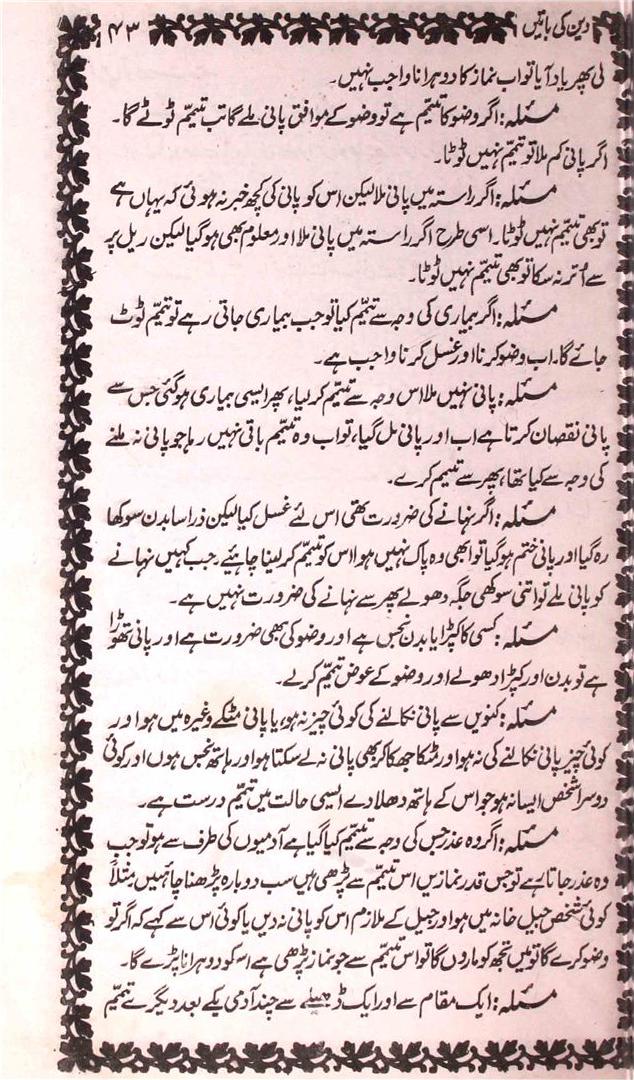 دین کی باتیں ۴۳
لی پھر یاد آیا تو اب نماز کا دوہرانا واجب نہیں۔
مسئلہ: اگر وضو کا تیمّم ہے تو وضو کے موافق پانی ملے گا تب تیمّم ٹوٹے گا۔
اگر پانی کم ملا تو تیمّم نہیں ٹوٹا۔
مسئلہ: اگر راستہ میں پانی ملا لیکن اس کو پانی کی کچھ خبر نہ ہوئی کہ یہاں ہے
تو بھی تیمّم نہیں ٹوٹا۔ اسی طرح اگر راستہ میں پانی ملا اور معلوم بھی ہوگیا لیکن ریل پر
سے اُتر نہ سکا تو بھی تیمّم نہیں ٹوٹا۔
مسئلہ: اگر بیماری کی وجہ سے تیمّم کیا تو جب بیماری جاتی رہے تو تیمّم ٹوٹ
جائے گا۔ اب وضو کرنا اور غسل کرنا واجب ہے۔
مسئلہ: پانی نہیں ملا اس وجہ سے تیمّم کرلیا، پھر ایسی بیماری ہوگئی جس سے
پانی نقصان کرتا ہے اب اور پانی مل گیا، تو اب وہ تیمّم باقی نہیں رہا جو پانی نہ ملنے
کی وجہ سے کیا تھا، پھر سے تیمم کرے۔
مسئلہ: اگر نہانے کی ضرورت تھی اس لئے غسل کیا لیکن ذرا سا بدن سوکھا
رہ گیا اور پانی ختم ہوگیا تو ابھی وہ پاک نہیں ہوا اس کو تیمّم کرلینا چاہئیے۔ جب کہیں نہانے
کو پانی ملے تو اتنی سوکھی جگہ دھولے پھر سے نہانے کی ضرورت نہیں ہے۔
مسئلہ: کسی کا کپڑا یا بدن نجس ہے اور وضو کی بھی ضرورت ہے اور پانی تھوڑا
ہے تو بدن اور کپڑا دھولے اور وضو کے عوض تیمّم کرلے۔
مسئلہ: کنویں سے پانی نکالنے کی کوئی چیز نہ ہو، یا پانی مٹکے وغیرہ میں ہو اور
کوئی چیز پانی نکالنے کی نہ ہو اور مٹکا جھکا کر بھی پانی نہ لے سکتا ہو اور ہاتھ نجس ہوں اور کوئی
دوسرا شخص ایسا نہ ہو جو اس کے ہاتھ دھلادے ایسی حالت میں تیمّم درست ہے۔
مسئلہ: اگر وہ عذر جس کی وجہ سے تیمّم کیا گیا ہے آدمیوں کی طرف سے ہو تو جب
وہ عذر جاتا رہے تو جس قدر نمازیں اس تیمّم سے پڑھی ہیں سب دوبارہ پڑھنا چاہئیں، مثلاً
کوئی شخص جیل خانہ میں ہو اور جیل کے ملازم اس کو پانی نہ دیں یا کوئی اس سے کہے کہ اگر تو
وضو کرے گا تو میں تجھ کو ماروں گا تو اس تیمّم سے جو نماز پڑھی ہے اس کو دوہرانا پڑے گا۔
مسئلہ: ایک مقام سے اور ایک ڈھیلے سے چند آدمی یکے بعد دیگرے تیمّم